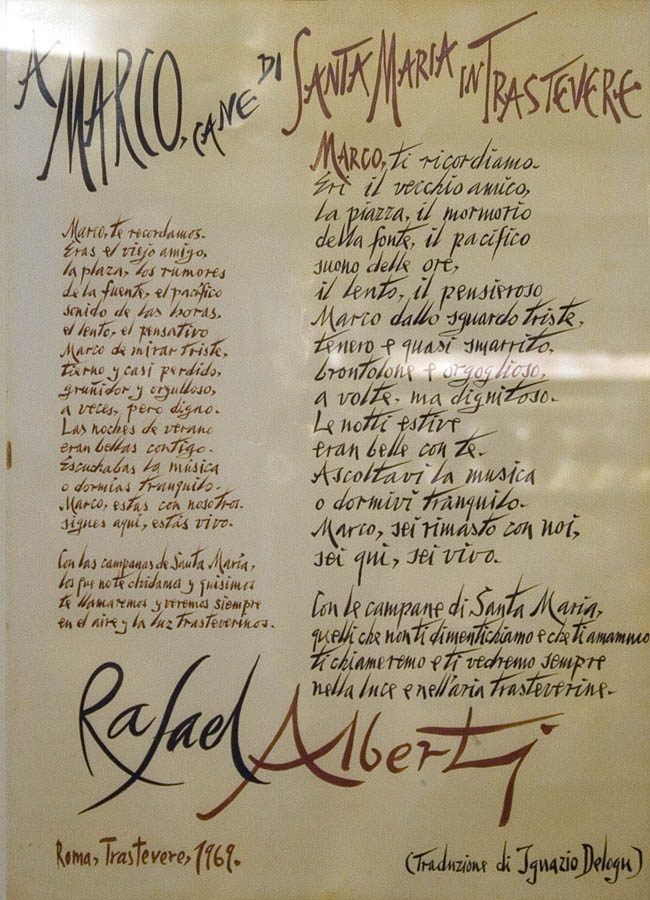 A MARCO, CANE DI SANTA MARIA IN TRASTEVERE
Marco, te recordamos.
Eras el viejo amigo,
la plaza, los rumores
de la fuente, el pacífico
sonido de las horas,
el lento, el pensativo
Marco de mirar triste,
tierno y casi perdido,
gruñidor y orgulloso,
a veces, pero digno.
Las noches de verano
eran bellas contigo.
Escuchabas la música
o dormías tranquilo.
Marco, estás con nosotros.
sigues aquí, estás vivo.
Con las campanas de Santa María,
los que no te olvidamos y quisimos
te llamaremos y veremos siempre
en el aire y la luz Trasteverinos.
MARCO, ti ricordiamo.
Eri il vecchio amico,
la piazza, il mormorio
della fonte, il pacifico
suono delle ore,
il lento, il pensieroso
Marco dallo sguardo triste,
tenero e quasi smarrito,
brontolone e orgoglioso,
a volte, ma dignitoso.
Le notti estive
eran belle con te.
Ascoltavi la musica
o dormivi tranquilo.
Marco, sei rimasto con noi,
sei qui, sei vivo.
Con le campane di Santa Maria,
quelli che non ti dimentichiamo e che ti amammo
ti chiameremo e ti vedremo sempre
nella luce e nell'aria trasteverine.
Rafael Alberti
Roma, Trastevere, 1969.
(Traduzione di Ignazio Delogu)